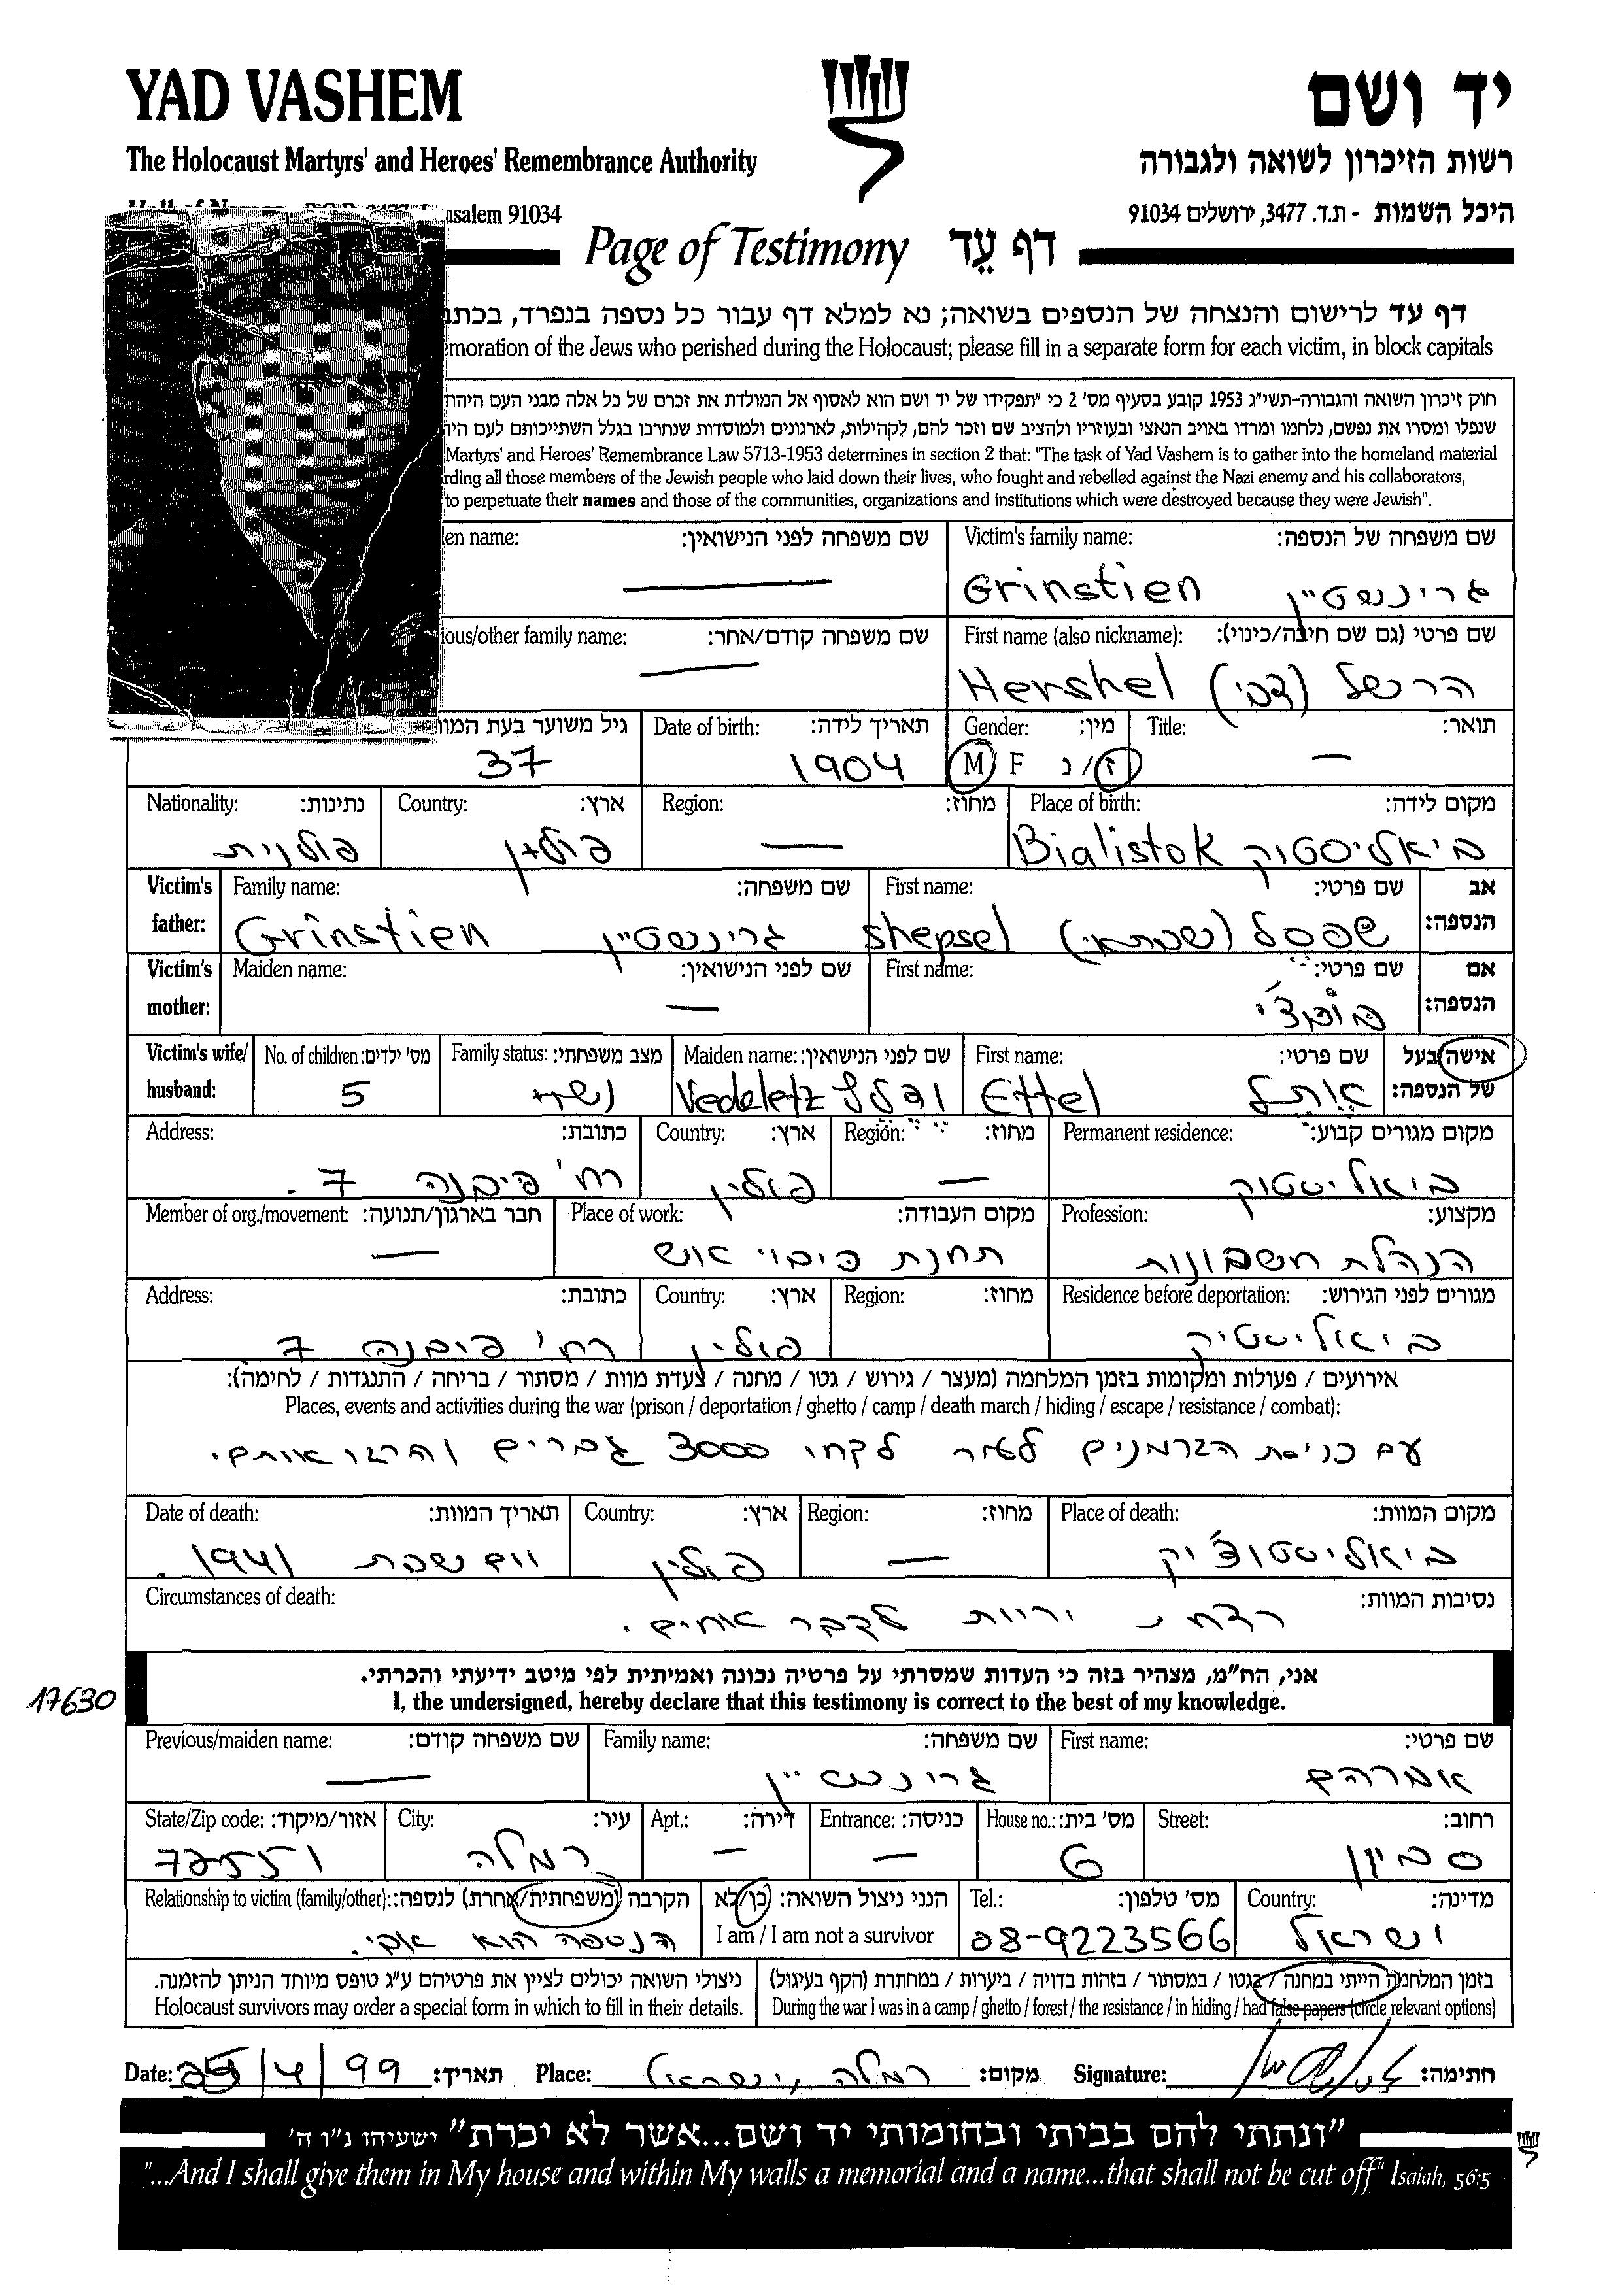 YAD VASHEM יד ושם
The Holocaust Martyrs' and Heroes' Remembrance Authority רשות הזיכרון לשואה ולגבורה
usalem 91034 היכל השמות - ת.ד. 3477, ירושלים 91034
Page of Testimony דף עֵד
דף עד לרישום והנצחה של הנספים בשואה; נא למלא דף עבור כל נספה בנפרד, בכתב
moration of the Jews who perished during the Holocaust; please fill in a separate form for each victim, in block capitals
חוק זיכרון השואה והגבורה-תשי״ג 1953 קובע בסעיף מס' 2 כי ״תפקידו של יד ושם הוא לאסוף אל המולדת את זכרם של כל אלה מבני העם היהוד
שנפלו ומסרו את נפשם, נלחמו ומרדו באויב הנאצי ובעוזריו ולהציב שם וזכר להם, לקהילות, לארגונים ולמוסדות שנחרבו בגלל השתייכותם לעם היה
Martyrs' and Heroes' Remembrance Law 5713-1953 determines in section 2 that: "The task of Yad Vashem is to gather into the homeland material
rding all those members of the Jewish people who laid down their lives, who fought and rebelled against the Nazi enemy and his collaborators,
to perpetuate their names and those of the communities, organizations and institutions which were destroyed because they were Jewish".
en name: שם משפחה לפני הנישואין: Victim's family name: שם משפחה של הנספה:
— Grinstien גרינשטיין
ious/other family name: שם משפחה קודם/אחר: First name (also nickname): שם פרטי (גם שם חיבה/כינוי):
— Hershel הרשל (צבי)
גיל משוער בעת המוו Date of birth: תאריך לידה: Gender: מין: Title: תואר:
37 1904 M F ז/נ —
Nationality: נתינות: Country: ארץ: Region: מחוז: Place of birth: מקום לידה:
פולנית פולין — Bialistok ביאליסטוק
Victim's father: Family name: שם משפחה: First name: שם פרטי: אב הנספה:
Grinstien גרינשטיין shepsel שפסל (שבתאי)
Victim's mother: Maiden name: שם לפני הנישואין: First name: שם פרטי: אם הנספה:
—
Victim's wife/ husband: No. of children: מס' ילדים: Family status: מצב משפחתי: Maiden name: שם לפני הנישואין: First name: שם פרטי: אישה/בעל של הנספה:
5 נשוי Vedeletz ודלץ Ettel אתל
Address: כתובת: Country: ארץ: Region: מחוז: Permanent residence: מקום מגורים קבוע:
רח' פיבנה 7. פולין — ביאליסטוק
Member of org./movement: חבר בארגון/תנועה: Place of work: מקום העבודה: Profession: מקצוע:
— תחנת כיבוי אש הנהלת חשבונות
Address: כתובת: Country: ארץ: Region: מחוז: Residence before deportation: מגורים לפני הגירוש:
רח' פיבנה 7 פולין ביאליסטיק
אירועים / פעולות ומקומות בזמן המלחמה (מעצר / גירוש / גטו / מחנה / צעדת מוות / מסתור / בריחה / התנגדות / לחימה):
Places, events and activities during the war (prison / deportation / ghetto / camp / death march / hiding / escape / resistance / combat):
עם כניסת הגרמנים לעיר לקחו 3000 גברים והרגו אותם.
Date of death: תאריך המוות: Country: ארץ: Region: מחוז: Place of death: מקום המוות:
יום שבת 1941. פולין —
Circumstances of death: נסיבות המוות:
יריות לקבר אחים.
אני, הח״מ, מצהיר בזה כי העדות שמסרתי על פרטיה נכונה ואמיתית לפי מיטב ידיעתי והכרתי.
17630 I, the undersigned, hereby declare that this testimony is correct to the best of my knowledge.
Previous/maiden name: שם משפחה קודם: Family name: שם משפחה: First name: שם פרטי:
— גרינשטיין אברהם
State/Zip code: אזור/מיקוד: City: עיר: Apt.: דירה: Entrance: כניסה: House no.: מס' בית: Street: רחוב:
72551 רמלה — — 6 סביון
Relationship to victim (family/other): הקרבה (משפחתית/אחרת) לנספה: הנני ניצול השואה: כן/לא Tel.: מס' טלפון: Country: מדינה:
הנספה הוא אבי. I am / I am not a survivor 08-9223566 ישראל
ניצולי השואה יכולים לציין את פרטיהם ע״ג טופס מיוחד הניתן להזמנה. בזמן המלחמה הייתי במחנה / בגטו / במסתור / בזהות בדויה / ביערות / במחתרת (הקף בעיגול)
Holocaust survivors may order a special form in which to fill in their details. During the war I was in a camp / ghetto / forest / the resistance / in hiding / had false papers (circle relevant options)
Date: 25/4/99 תאריך: Place: רמלה, ישראל מקום: Signature: חתימה:
"ונתתי להם בביתי ובחומותי יד ושם...אשר לא יכרת" ישעיהו נ״ו ה'
"...And I shall give them in My house and within My walls a memorial and a name...that shall not be cut off" Isaiah, 56:5